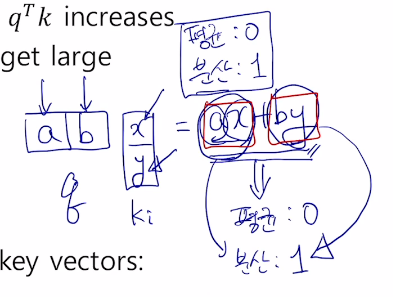 qᵀk increases
get large
평균 : 0
분산 : 1
a b
x
y
= ax + by
q
ki
평균 : 0
분산 : 1
key vectors: